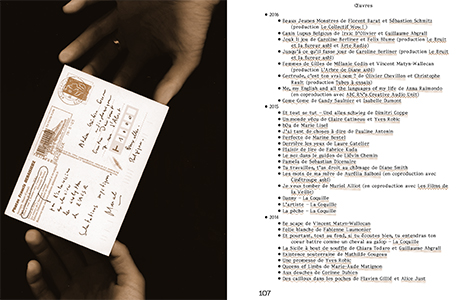 Œuvres
2016
Beaux Jeunes Monstres de Florent Barat et Sébastien Schmitz
(production Le Collectif Wow!)
Canis Lupus Belgicus de Irvic D'Olivier et Guillaume Abgrall
Jouk li jou de Caroline Berliner et Felix Blume (production Le Bruit
et la fureur asbl et Arte Radio)
Jusqu'à ce qu'il fasse jour de Caroline Berliner (production Le Bruit
et la fureur asbl)
Femmes de Gilles de Mélanie Godin et Vincent Matyn-Wallecan
(production L'Arbre de Diane asbl)
Gertrude, c'est ton vrai nom ? de Olivier Chevillon et Christophe
Rault (production Tubes à essais)
Me, my English and all the languages of my life de Anna Raimondo
(en coproduction avec ABC RN's Creative Audio Unit)
Come Come de Candy Saulnier et Isabelle Dumont
2015
Et tout se tut - Und alles schwieg de Dimitri Coppe
Un monde vécu de Claire Gatineau et Yves Robic
bOa de Marie Lisel
J'ai tant de choses à dire de Pauline Antonin
Perfecto de Marine Bestel
Derrière les yeux de Laure Gatelier
Plaisir de lire de Fabrice Kada
La mer dans le guidon de Calvin Chemin
Pamela de Sébastien Dicenaire
Tu travailles, t'as droit au chômage de Diane Smith
Les mots de ma mère de Aurélia Balboni (en coproduction avec
Cinétroupe asbl)
Je veux tomber de Muriel Alliot (en coproduction avec Les Films de
la Veille)
Danny - La Coquille
L'artiste - La Coquille
La pêche - La Coquille
2014
Be scape de Vincent Matyn-Wallecan
Folie blanche de Fabienne Laumonier
Et pourtant, tout au fond, si tu écoutes bien, tu entendras ton
coeur battre comme un cheval au galop - La Coquille
La Sicile à bout de souffle de Chiara Todaro et Guillaume Abgrall
Existence souterraine de Mathilde Gougoux
Une promesse de Yves Robic
Queens of Limbs de Marie-Aude Matignon
Aux douches de Corinne Dubien
Des cailloux dans les poches de Flavien Gillié et Alice Just
107